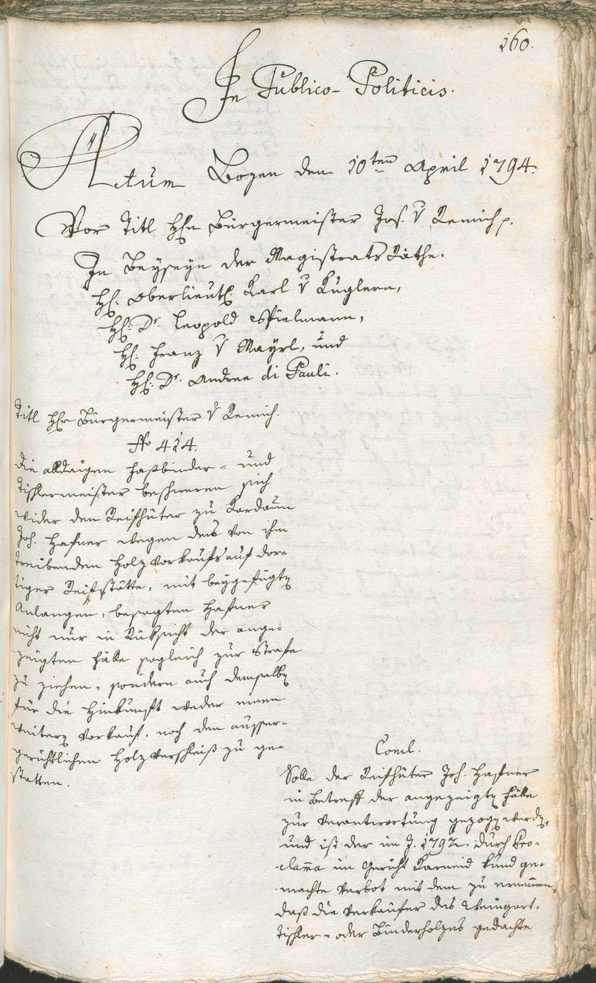 160.
In Publico-Politicis.
Actum Bozen den 10ten April 1794.
Vor Titl Hhn Bürgermeister Jos. v Remich p.
In Beyseyn der Magistrats Räthe.
Hh. Oberlieut Karl v Kuglern,
Hh. Dr. Leopold Spielmann,
Hh. Franz v Mayrl, und
Hh. Dr. Andree di Pauli.
Titl Hhr Bürgermeister v Remich.
No 414.
Die alldaigen Faßbinder- und
Tischlermeister beschweren sich
wider den Reifhüter zu Kardaun
Joh. Hafner wegen des von ihm
treibenden Holz Vorkaufs auf dor-
tiger Reifstätte, mit beygefügten
Anlangen, besagten Hafner
nicht nur in Rüksicht der ange-
zeigten Fälle sogleich zur Strafe
zu ziehen, sondern auch demselben
für die Hinkunft weder einen
weitern Vorkauf, noch den ausser-
gerichtlichen Holzverschleiß zu ge-
statten.
Concl.
Solle der Reifhüter Joh. Hafner
in Betreff der angezeigten Fälle
zur Verantwortung gezogen werden,
und ist der im J. 1792. durch Pro-
clama im Gericht Karneid kund ge-
machte Verbot mit dem zu erneuern,
daß die Verkäufer des Weingart-
Tischler- oder Binderholzes gedachte